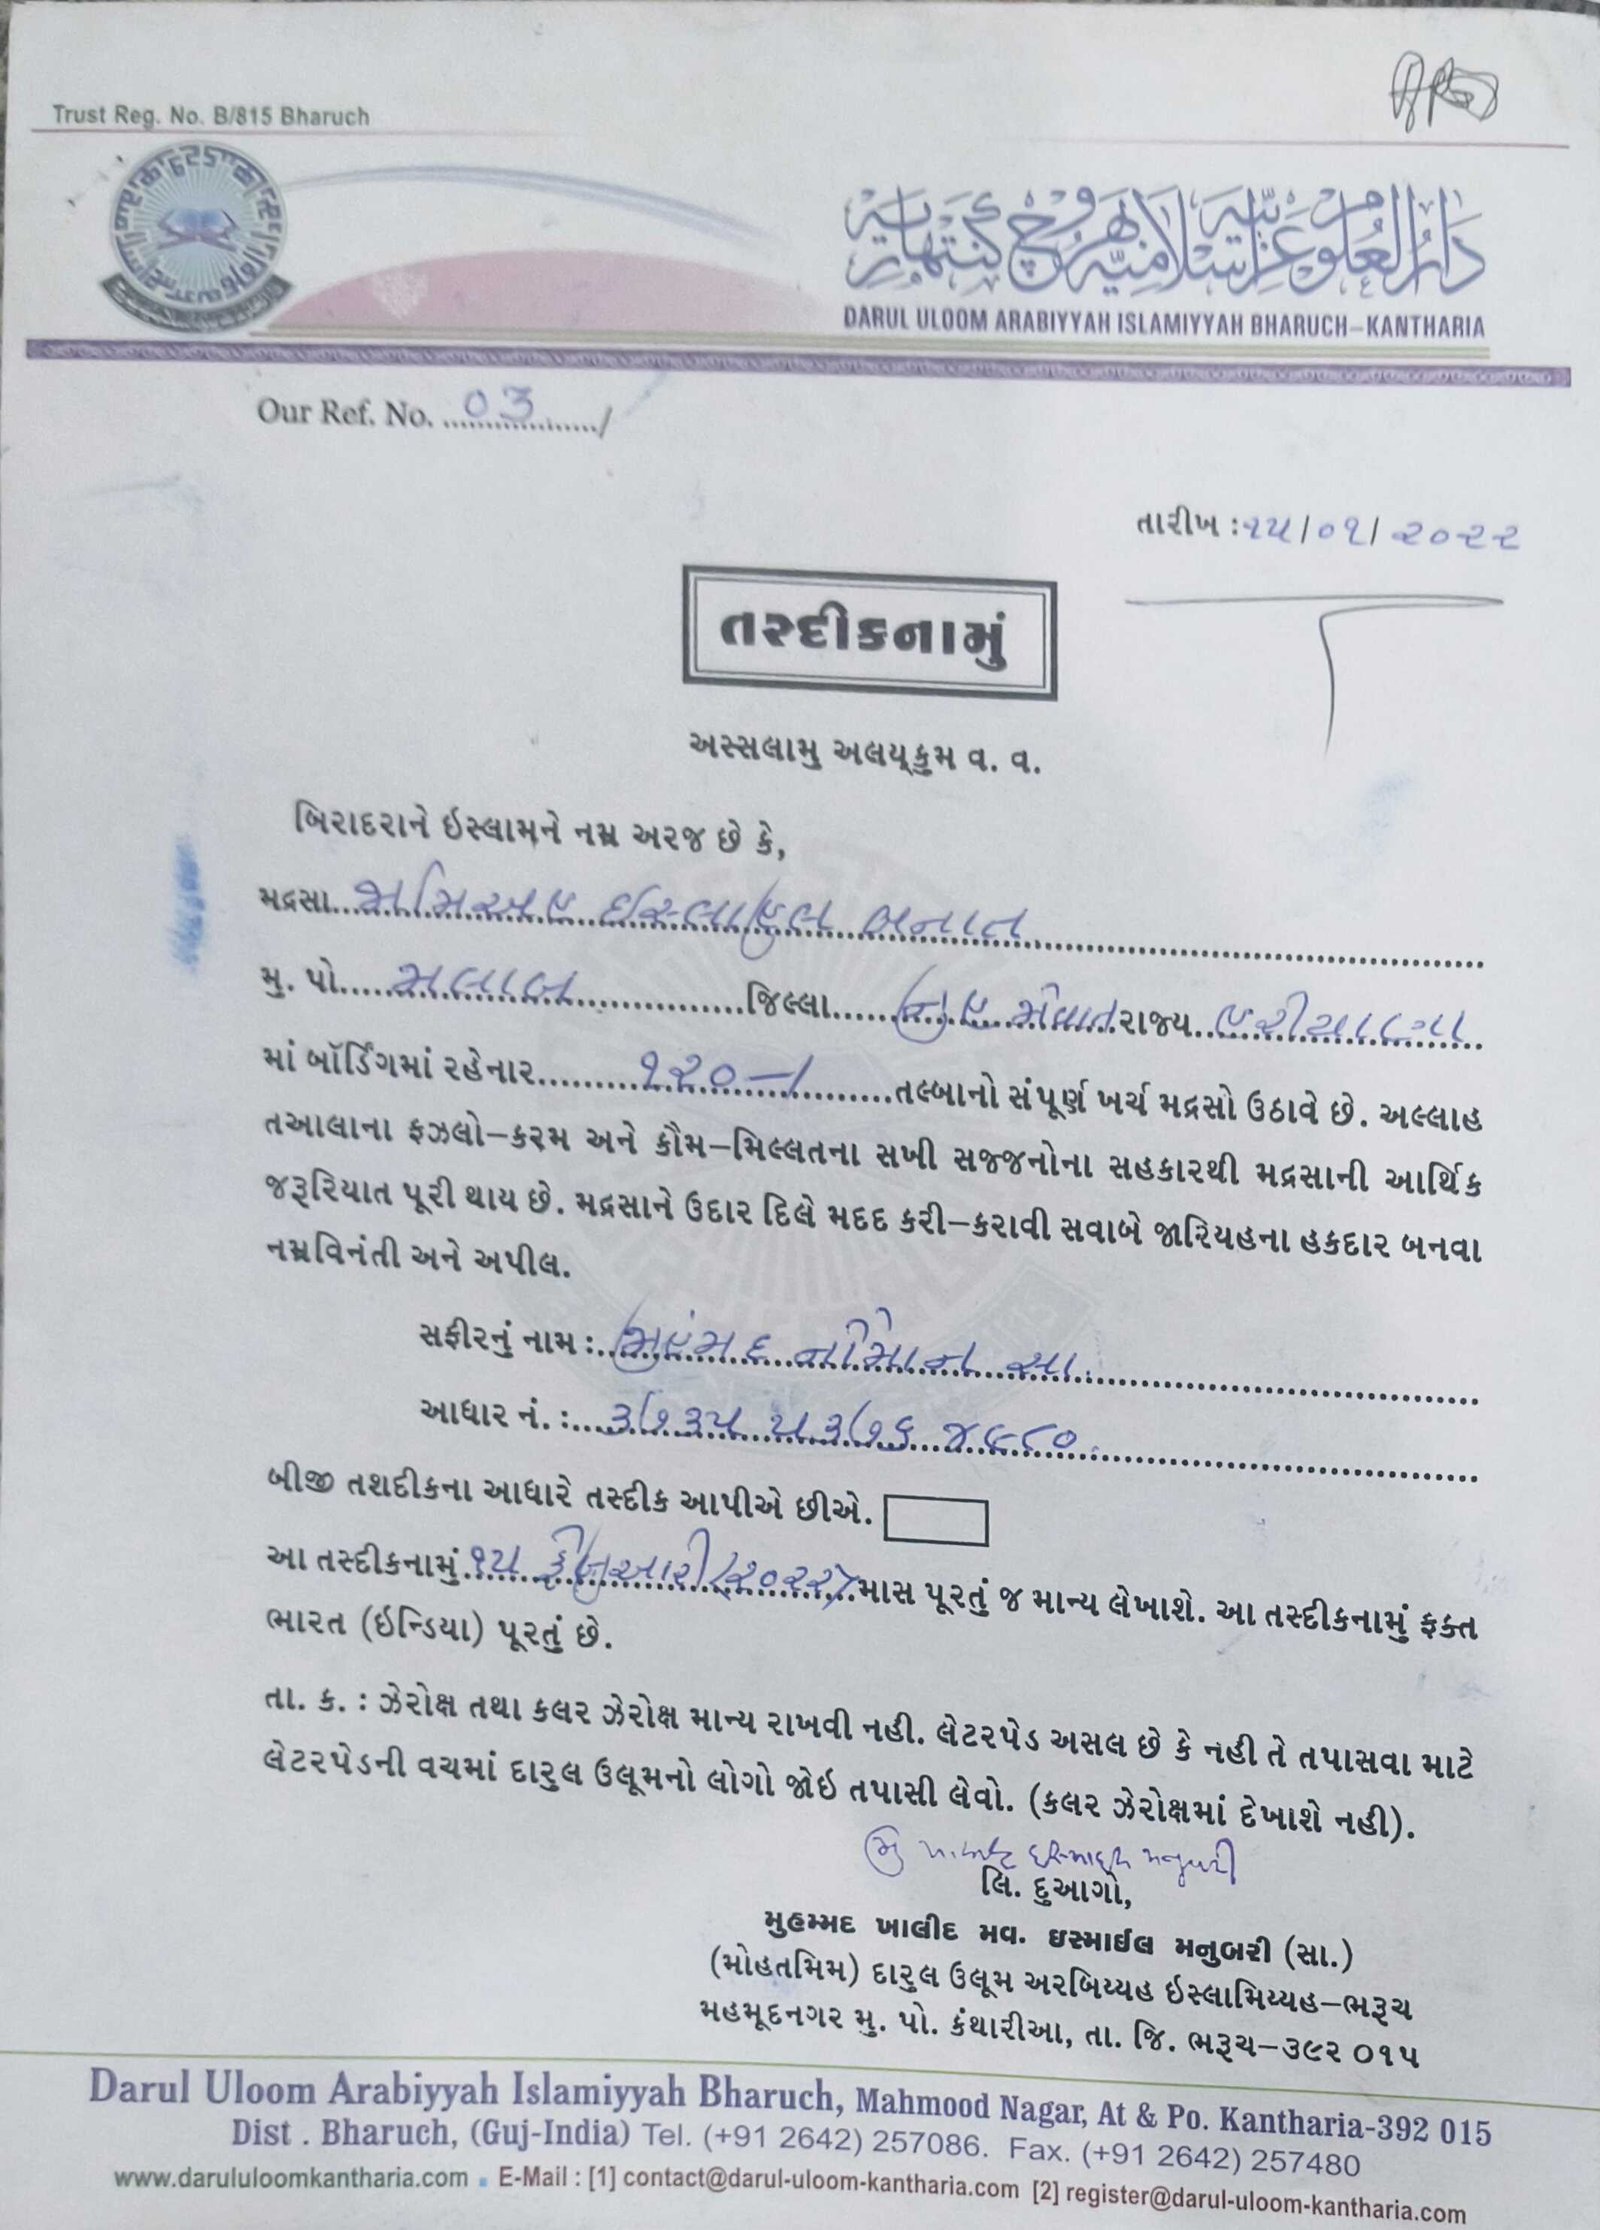 Trust Reg. No. B/815 Bharuch
دارالعلوم عربیہ اسلامیہ بھروچ کنتھاریہ
DARUL ULOOM ARABIYYAH ISLAMIYYAH BHARUCH–KANTHARIA
Our Ref. No. 03 /
તારીખ : ૧૫/૦૧/૨૦૨૨
તસ્દીકનામું
અસ્સલામુ અલય્કુમ વ. વ.
બિરાદરાને ઇસ્લામને નમ્ર અરજ છે કે,
મદ્રસા જામિઅહ ઈસ્લાહુલ બનાત
મુ. પો. મલાબ જિલ્લા નુહ મેવાત રાજ્ય હરીયાણા
માં બૉર્ડિંગમાં રહેનાર ૧૨૦–/ તલ્બાનો સંપૂર્ણ ખર્ચ મદ્રસો ઉઠાવે છે. અલ્લાહ
તઆલાના ફઝલો–કરમ અને કૌમ–મિલ્લતના સખી સજ્જનોના સહકારથી મદ્રસાની આર્થિક
જરૂરિયાત પૂરી થાય છે. મદ્રસાને ઉદાર દિલે મદદ કરી–કરાવી સવાબે જારિયહના હકદાર બનવા
નમ્રવિનંતી અને અપીલ.
સફીરનું નામ : મુહંમદ નોમાન સા.
આધાર નં. :
બીજી તશદીકના આધારે તસ્દીક આપીએ છીએ.
આ તસ્દીકનામું ૧૫ ફેબ્રુઆરી (૨૦૨૨) માસ પૂરતું જ માન્ય લેખાશે. આ તસ્દીકનામું ફક્ત
ભારત (ઇન્ડિયા) પૂરતું છે.
તા. ક. : ઝેરોક્ષ તથા કલર ઝેરોક્ષ માન્ય રાખવી નહી. લેટરપેડ અસલ છે કે નહી તે તપાસવા માટે
લેટરપેડની વચમાં દારુલ ઉલૂમનો લોગો જોઇ તપાસી લેવો. (કલર ઝેરોક્ષમાં દેખાશે નહી).
લિ. દુઆગો,
મુહમ્મદ ખાલીદ મવ. ઇસ્માઈલ મનુબરી (સા.)
(મોહતમિમ) દારુલ ઉલૂમ અરબિય્યહ ઇસ્લામિય્યહ–ભરૂચ
મહમૂદનગર મુ. પો. કંથારીઆ, તા. જિ. ભરૂચ–૩૯૨ ૦૧૫
Darul Uloom Arabiyyah Islamiyyah Bharuch, Mahmood Nagar, At & Po. Kantharia-392 015
Dist . Bharuch, (Guj-India) Tel. (+91 2642) 257086. Fax. (+91 2642) 257480
www.darululoomkantharia.com ▪ E-Mail : [1] contact@darul-uloom-kantharia.com [2] register@darul-uloom-kantharia.com